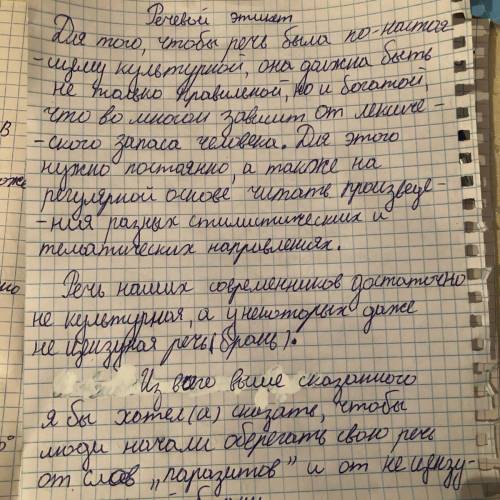 Речевой этикет
Для того, чтобы речь была по-настоя
-щему культурной, она должна быть
не только правильной, но и богатой,
что во многом зависит от лексиче-
-ского запаса человека. Для этого
нужно постоянно, а также на
регулярной основе читать произведе-
-ния разных стилистических и
тематических направлениях.
Речь наших современников достаточно
не культурная, а у некоторых даже
не цензурная речь (брань).
Из всего выше сказанного
я бы хотел(а) сказать, чтобы
люди начали оберегать свою речь
от слов „паразитов" и от не цензу-